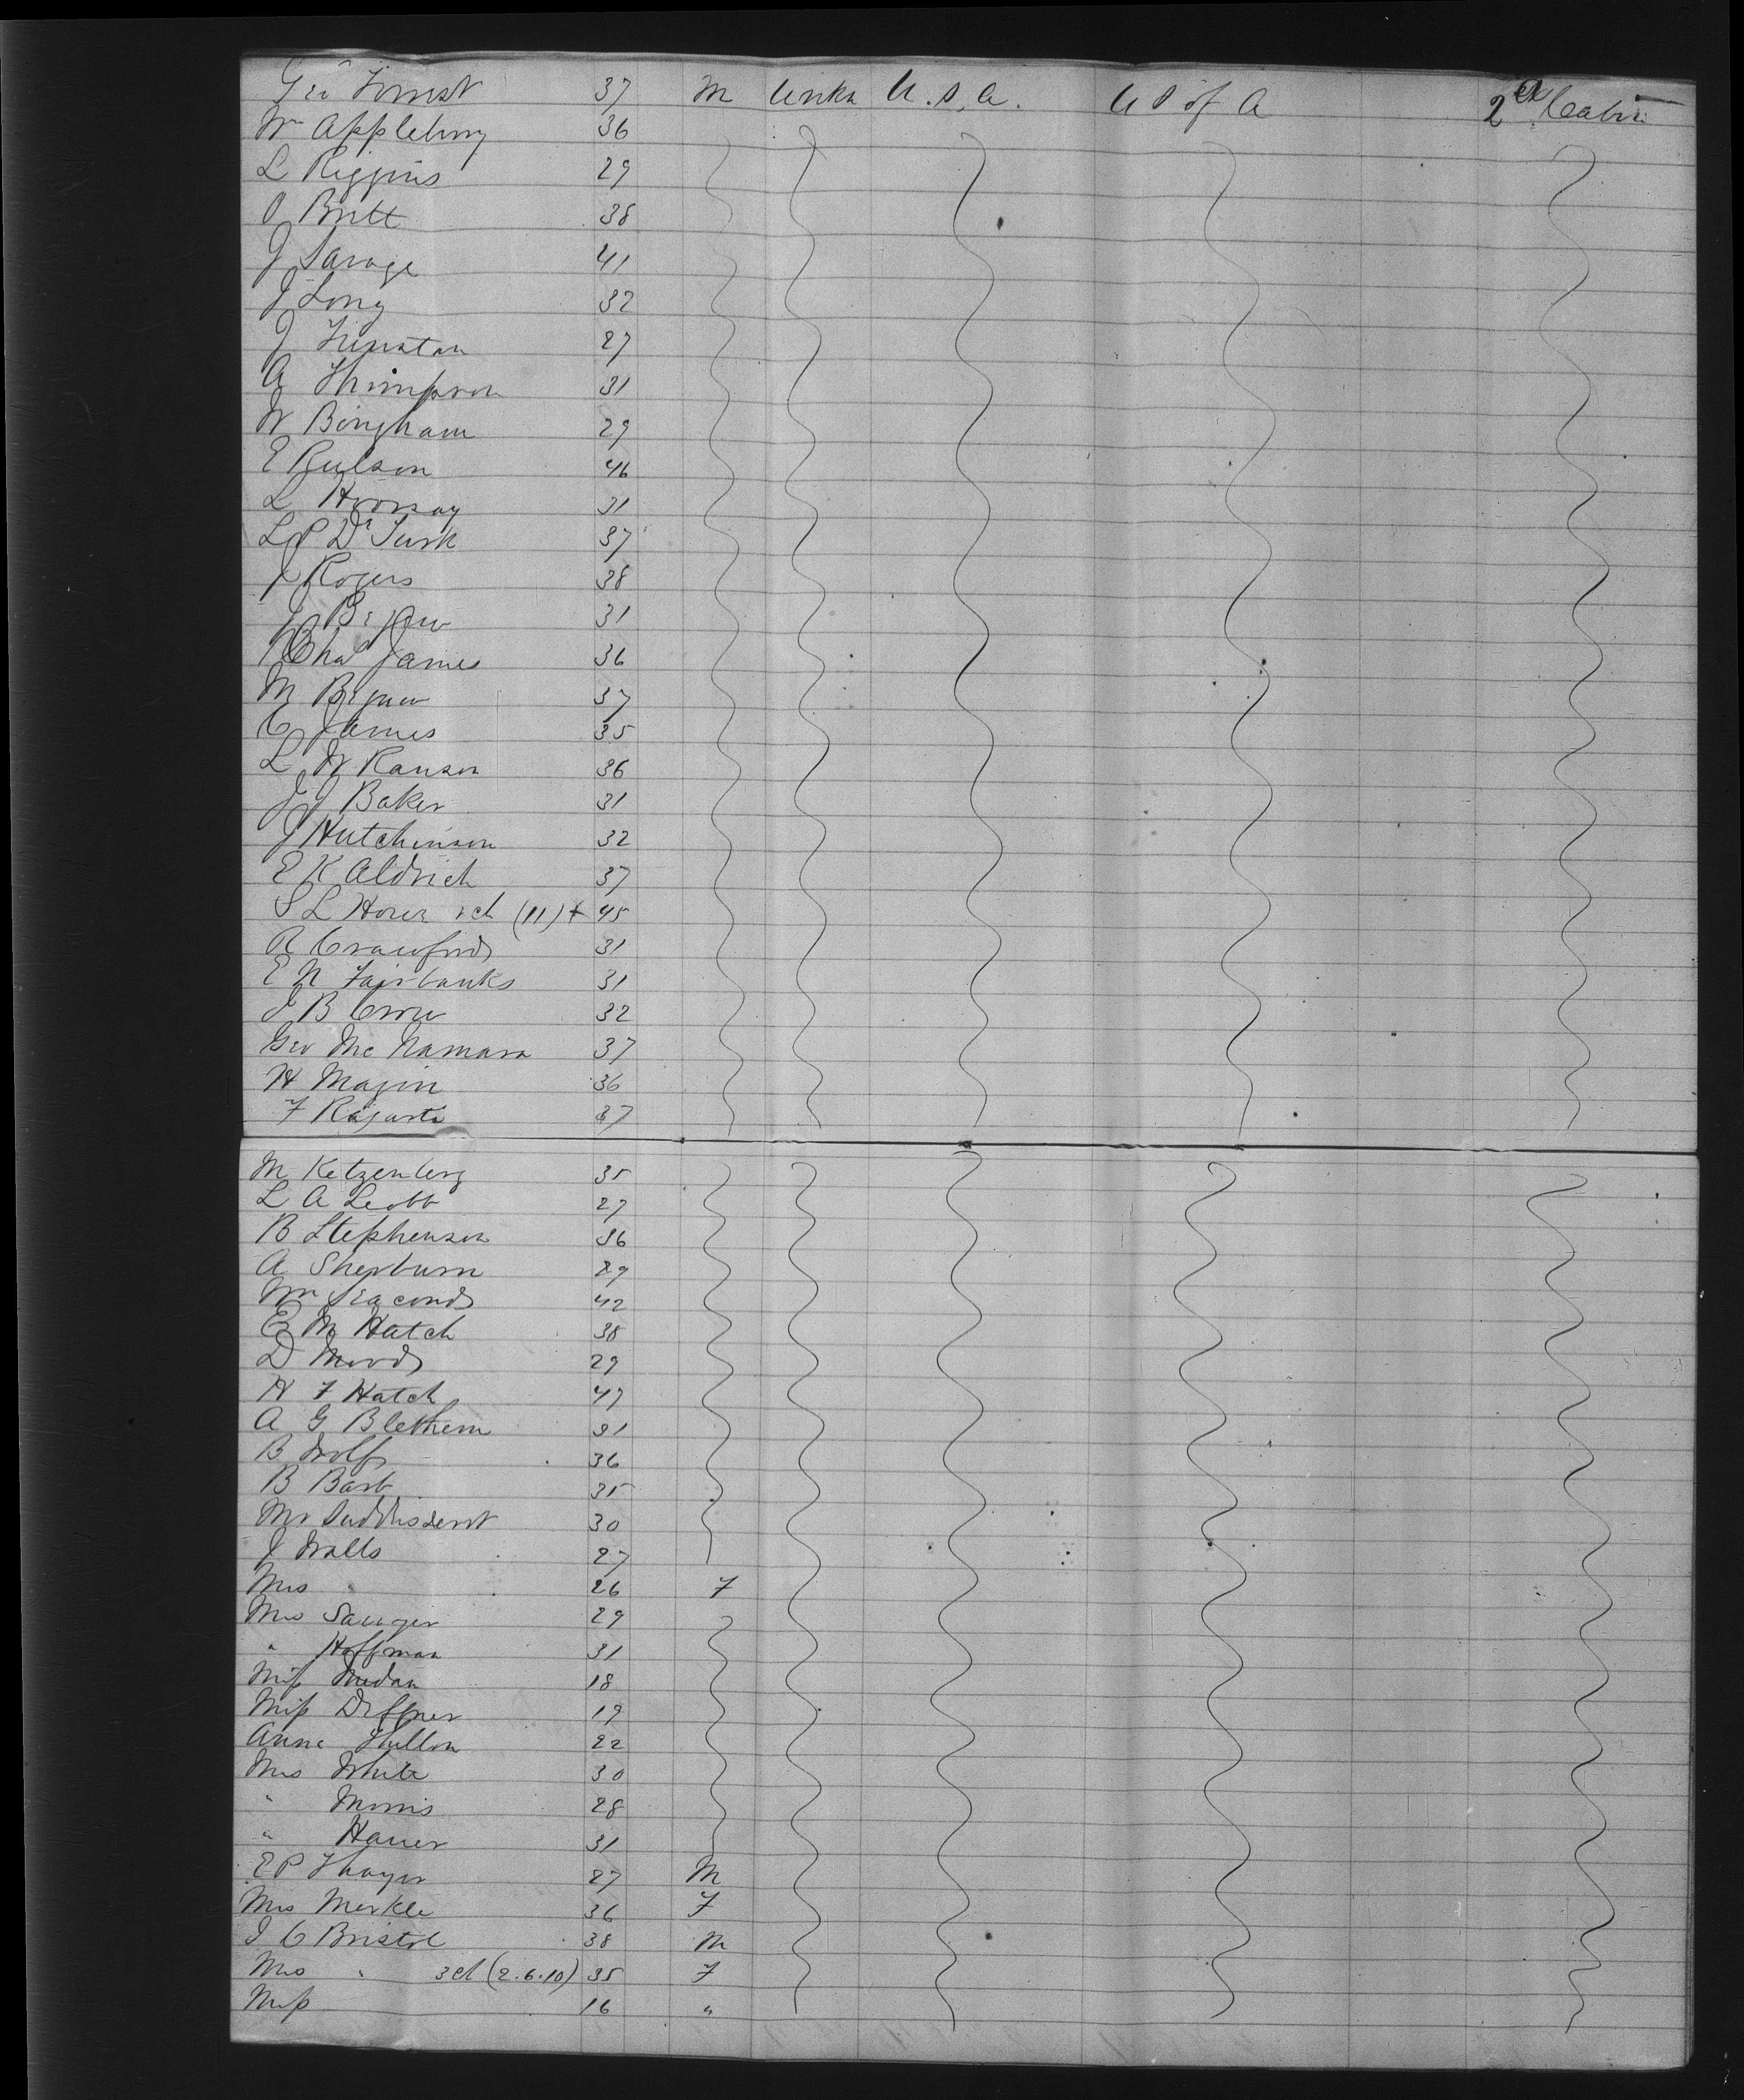 Geo Forrest 37 M Unkn U.S.A. U S of A 2d Cabin
Wm Appleberry 36
L Riggins 29
O Britt 38
J Savage 41
J Long 32
J Funstan 27
A Thimpson 31
W Bingham 29
E Rulson 46
L Hoorsay 31
L P D Turk 37
J Rogers 38
J Bejow 31
Chas James 36
M Bejow 37
C James 35
L W Ranson 36
J J Baker 31
J Hutchinson 32
E K Aldrich 37
S L Hover & ch (11) + 45
R Crawford 31
E N Fairbanks 31
J B Crow 32
Geo Mc Namara 37
H Magin 36
F 37
M Ketzenberg 35
L A Leobb 27
B Stephenson 36
A Sherburn 29
Wm Seaconds 42
E M Hatch 38
D Moods 29
H F Hatch 47
A G Blethem 31
B Wolf 36
B Barb 35
Mr 30
J Walls 27
Mrs " 26 F
Mrs Sawyer 29
" Hoffman 31
Miss Medan 18
Miss Deffner 19
Anne Hullon 22
Mrs White 30
" Morris 28
" Hauer 31
E P Thayer 27 M
Mrs Merkle 36 F
J C Bristol 38 M
Mrs " 3 ch (2.6.10) 35 F
Miss 16 "